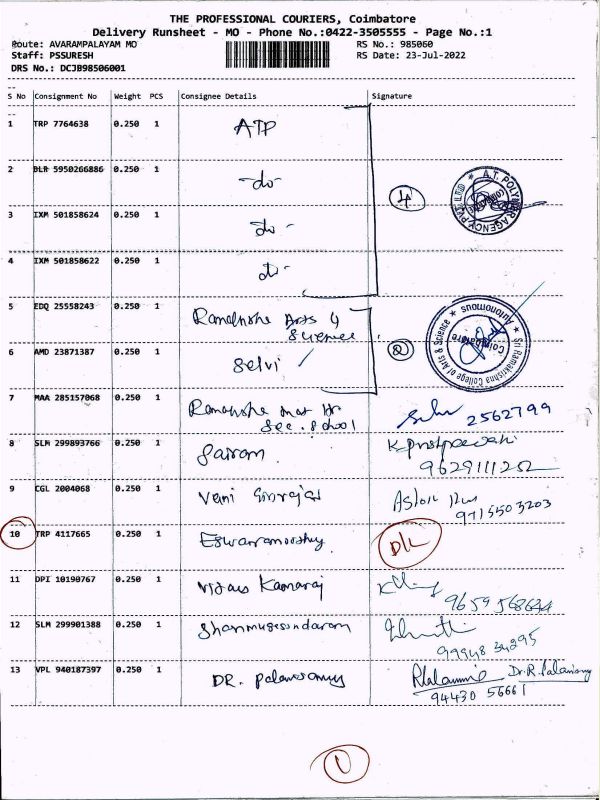 THE PROFESSIONAL COURIERS, Coimbatore
Delivery Runsheet - MO - Phone No.:0422-3505555 - Page No.:1
Route: AVARAMPALAYAM MO
RS No.: 985060
Staff: PSSURESH
RS Date: 23-Jul-2022
DRS No.: DCJB98506001
S No Consignment No Weight PCS Consignee Details Signature
1 TRP 7764638 0.250 1 ATP
2 BLR 5950266886 0.250 1 -do-
4
A.T. POLYMER AGENCY PVT. LTD
3 IXM 501858624 0.250 1 do-
4 IXM 501858622 0.250 1 do-
5 EDQ 25558243 0.250 1 Arts &
Science
2
Sri Ramakrishna College of Arts & Science
Autonomous
Coimbatore
6 AMD 23871387 0.250 1 Selvi
7 MAA 285157068 0.250 1 mat Hr
Sec. School
2562799
8 SLM 299893766 0.250 1 Sairam
9629111252
9 CGL 2004068 0.250 1 Veni
9715503203
10 TRP 4117665 0.250 1 Eswaramoorthy
D/L
11 DPI 10190767 0.250 1 Kamaraj
12 SLM 299901388 0.250 1 Shanmugasundaram
9994834295
13 VPL 940187397 0.250 1 DR. Palanisamy
Dr.R.Palanisamy
94430 56661
1